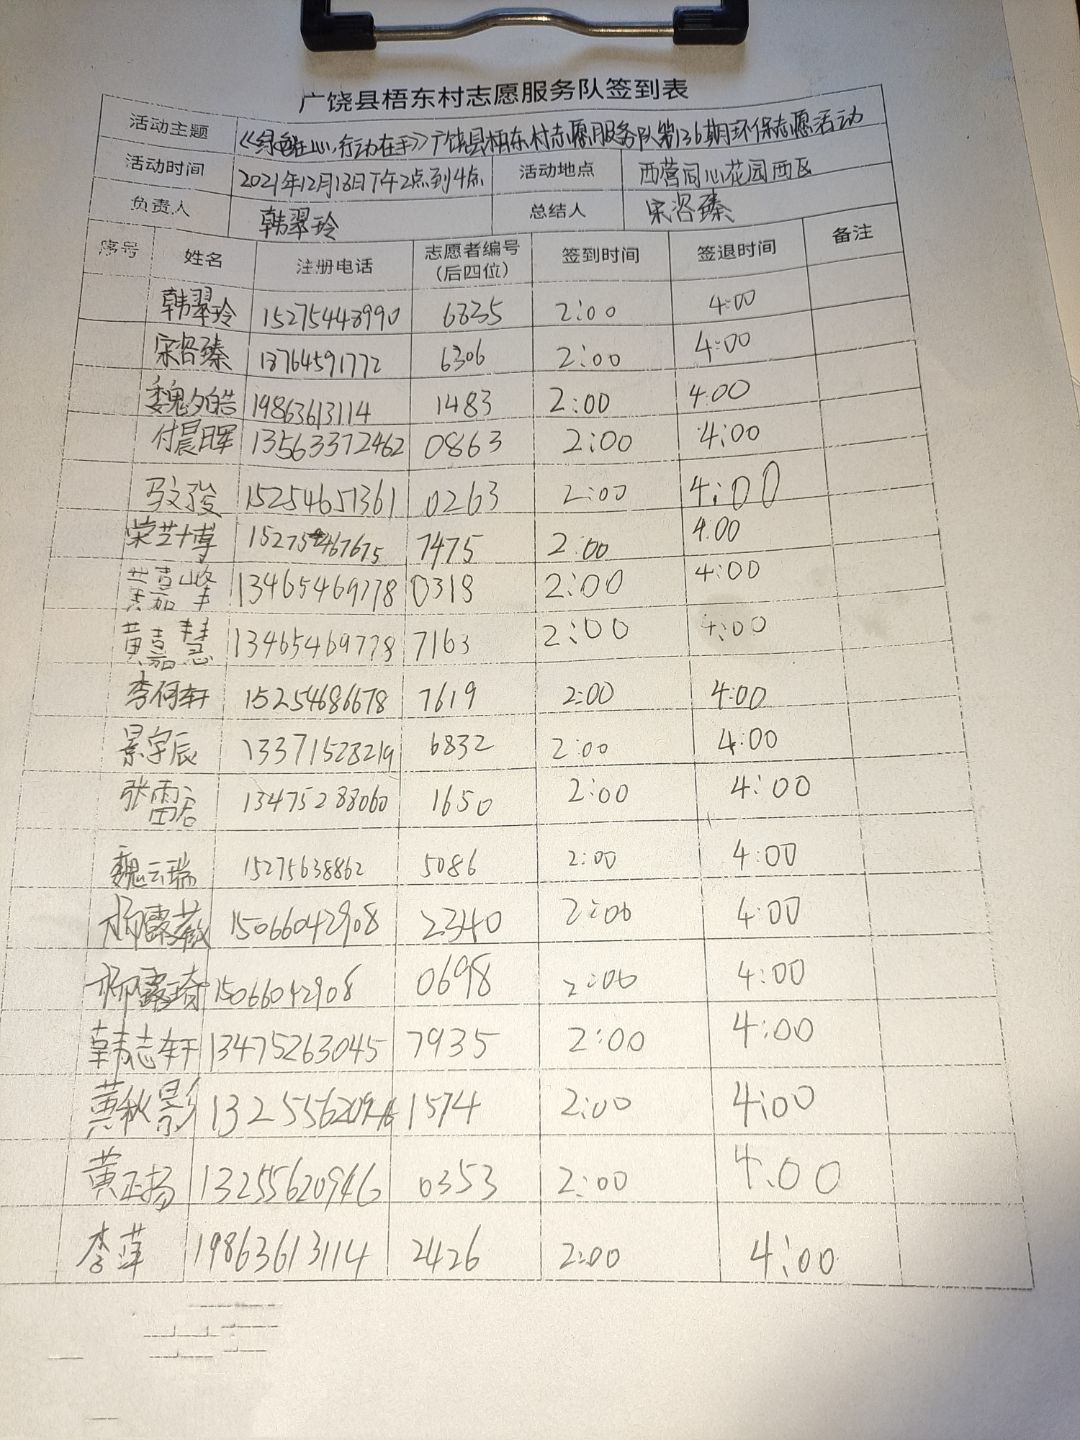 广饶县梧东村志愿服务队签到表
活动主题 《绿色在心,行动在手》广饶县梧东村志愿服务队第136期环保志愿活动
活动时间 2021年12月18日下午2点到4点 活动地点 西营同心花园西区
负责人 韩翠玲 总结人 宋咨臻
序号 姓名 注册电话 志愿者编号(后四位) 签到时间 签退时间 备注
韩翠玲 15275448990 6835 2:00 4:00
宋咨臻 13764591772 6306 2:00 4:00
魏夕皓 19863613114 1483 2:00 4:00
付晨晖 13563372462 0863 2:00 4:00
马文骏 15254651361 0263 2:00 4:00
荣芝博 15275467675 7475 2:00 4:00
黄嘉峰 13465469778 0318 2:00 4:00
黄嘉慧 13465469778 7163 2:00 4:00
李何轩 15254686678 7619 2:00 4:00
景宇辰 13371528219 6832 2:00 4:00
张雷 13475288060 1650 2:00 4:00
魏云瑞 15275638862 5086 2:00 4:00
杨露薇 15066042908 2340 2:00 4:00
杨露琦 15066042908 0698 2:00 4:00
韩志轩 13475263045 7935 2:00 4:00
黄秋影 13255620946 1574 2:00 4:00
黄正扬 13255620946 0353 2:00 4:00
李萍 19863613114 2426 2:00 4:00